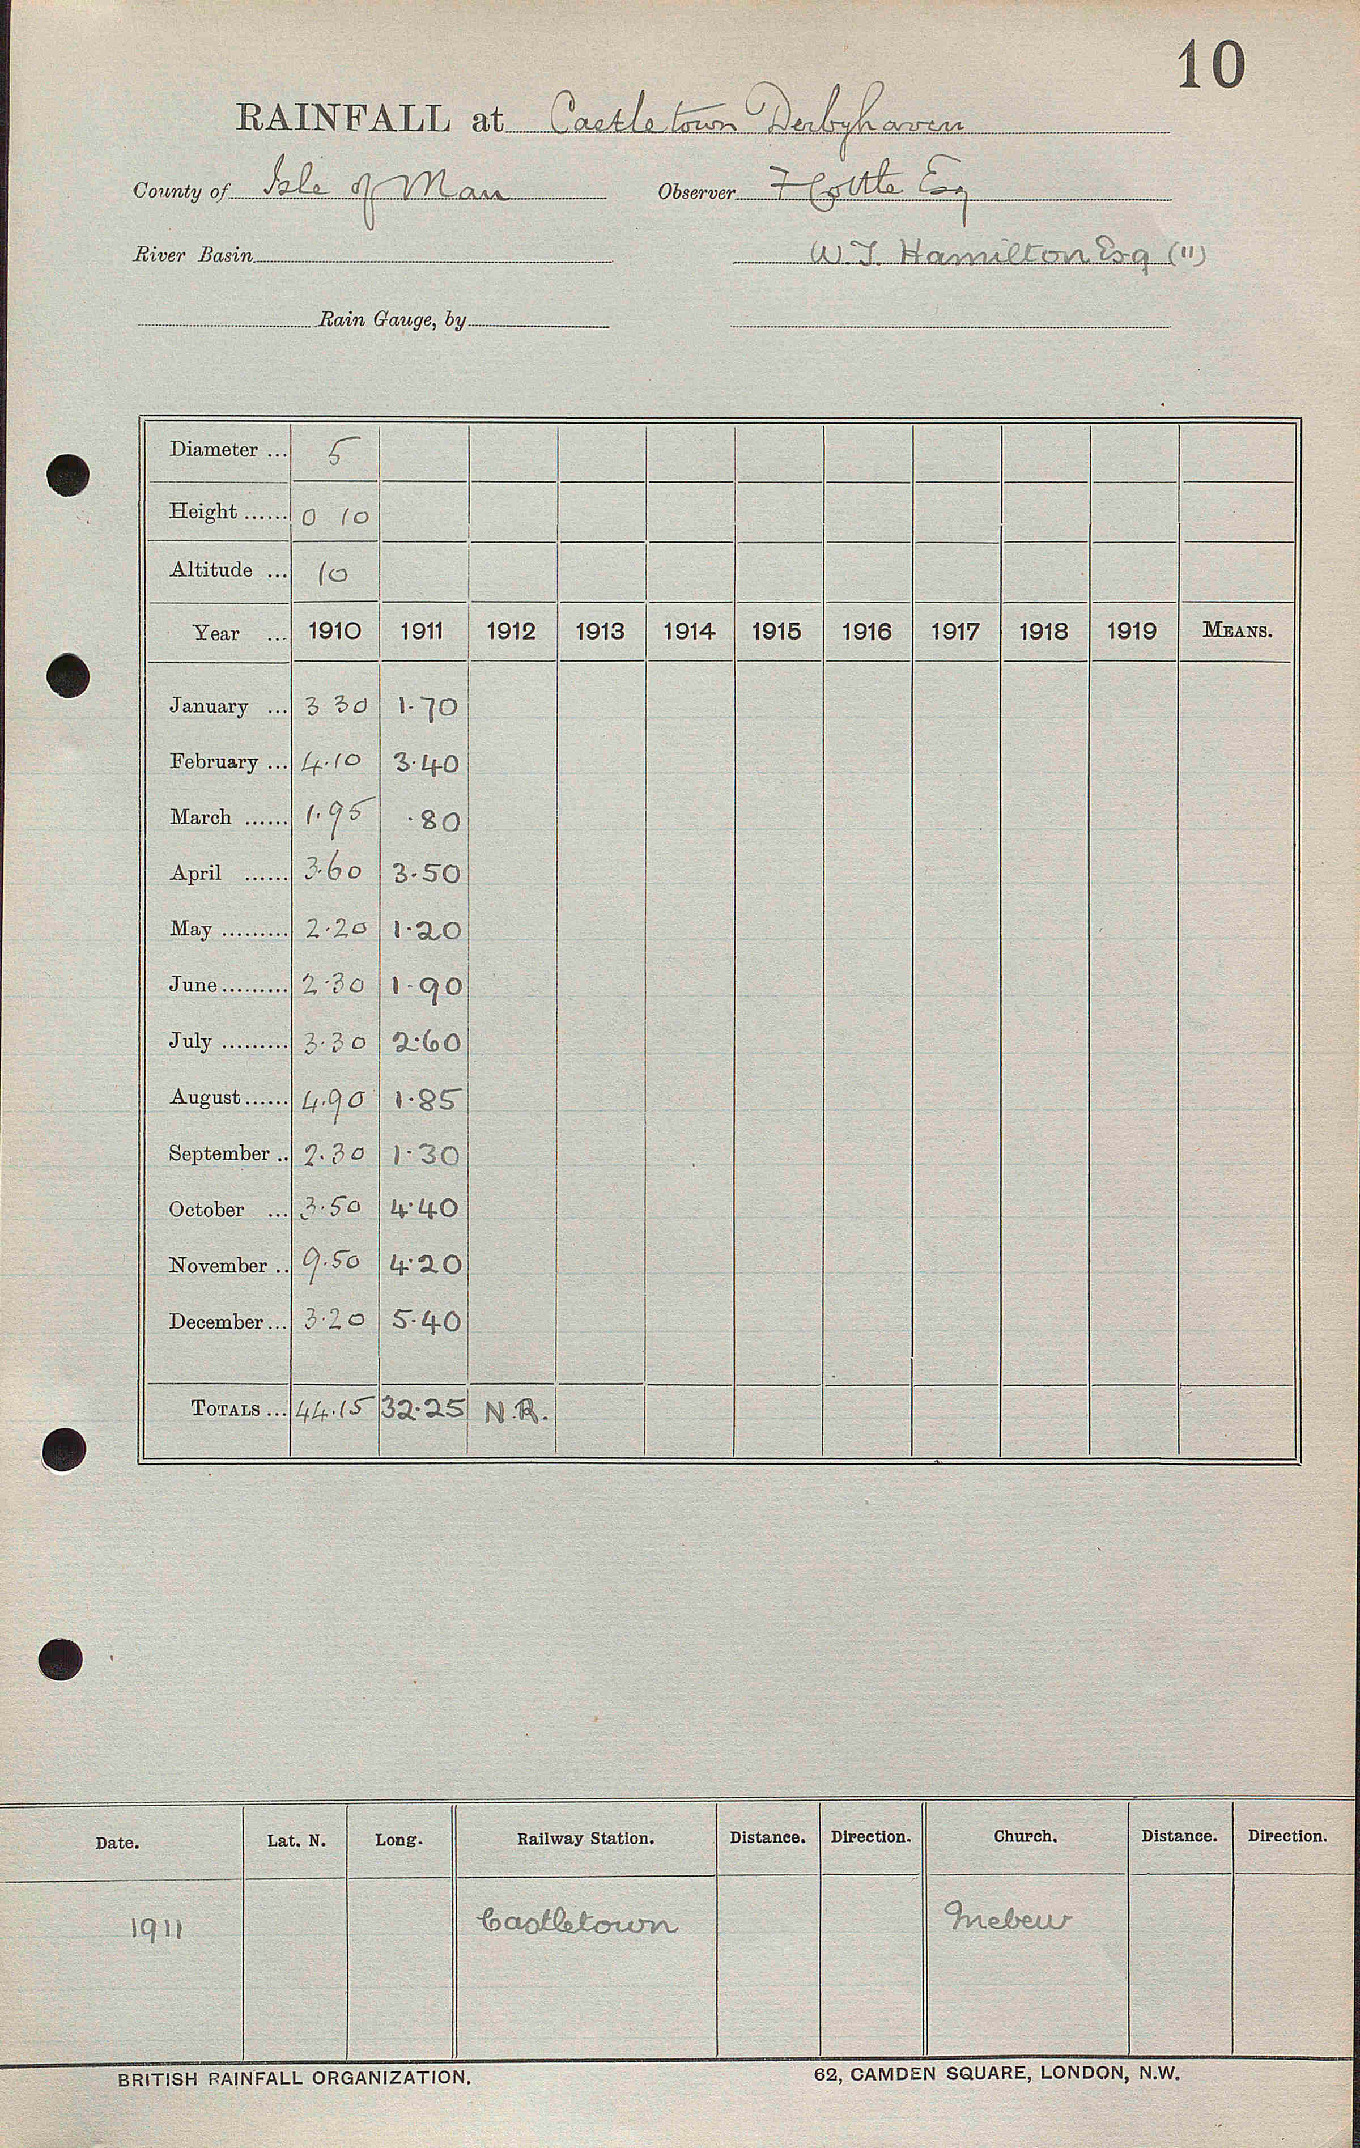 10
RAINFALL at Castletown Derbyhaven
County of Isle of Man Observer F Cottle Esq
River Basin W. J. Hamilton Esq (11)
Rain Gauge, by
Diameter ... 5
Height ...... 0 10
Altitude ... 10
Year ... 1910 1911 1912 1913 1914 1915 1916 1917 1918 1919 MEANS.
January ... 3 30 1.70
February ... 4.10 3.40
March ...... 1.95 .80
April ...... 3.60 3.50
May ......... 2.20 1.20
June ......... 2.30 1.90
July ......... 3.30 2.60
August ...... 4.90 1.85
September .. 2.30 1.30
October ... 3.50 4.40
November .. 9.50 4.20
December ... 3.20 5.40
TOTALS ... 44.15 32.25 N.R.
Date. Lat. N. Long. Railway Station. Distance. Direction. Church. Distance. Direction.
1911 Castletown
BRITISH RAINFALL ORGANIZATION. 62, CAMDEN SQUARE, LONDON, N.W.